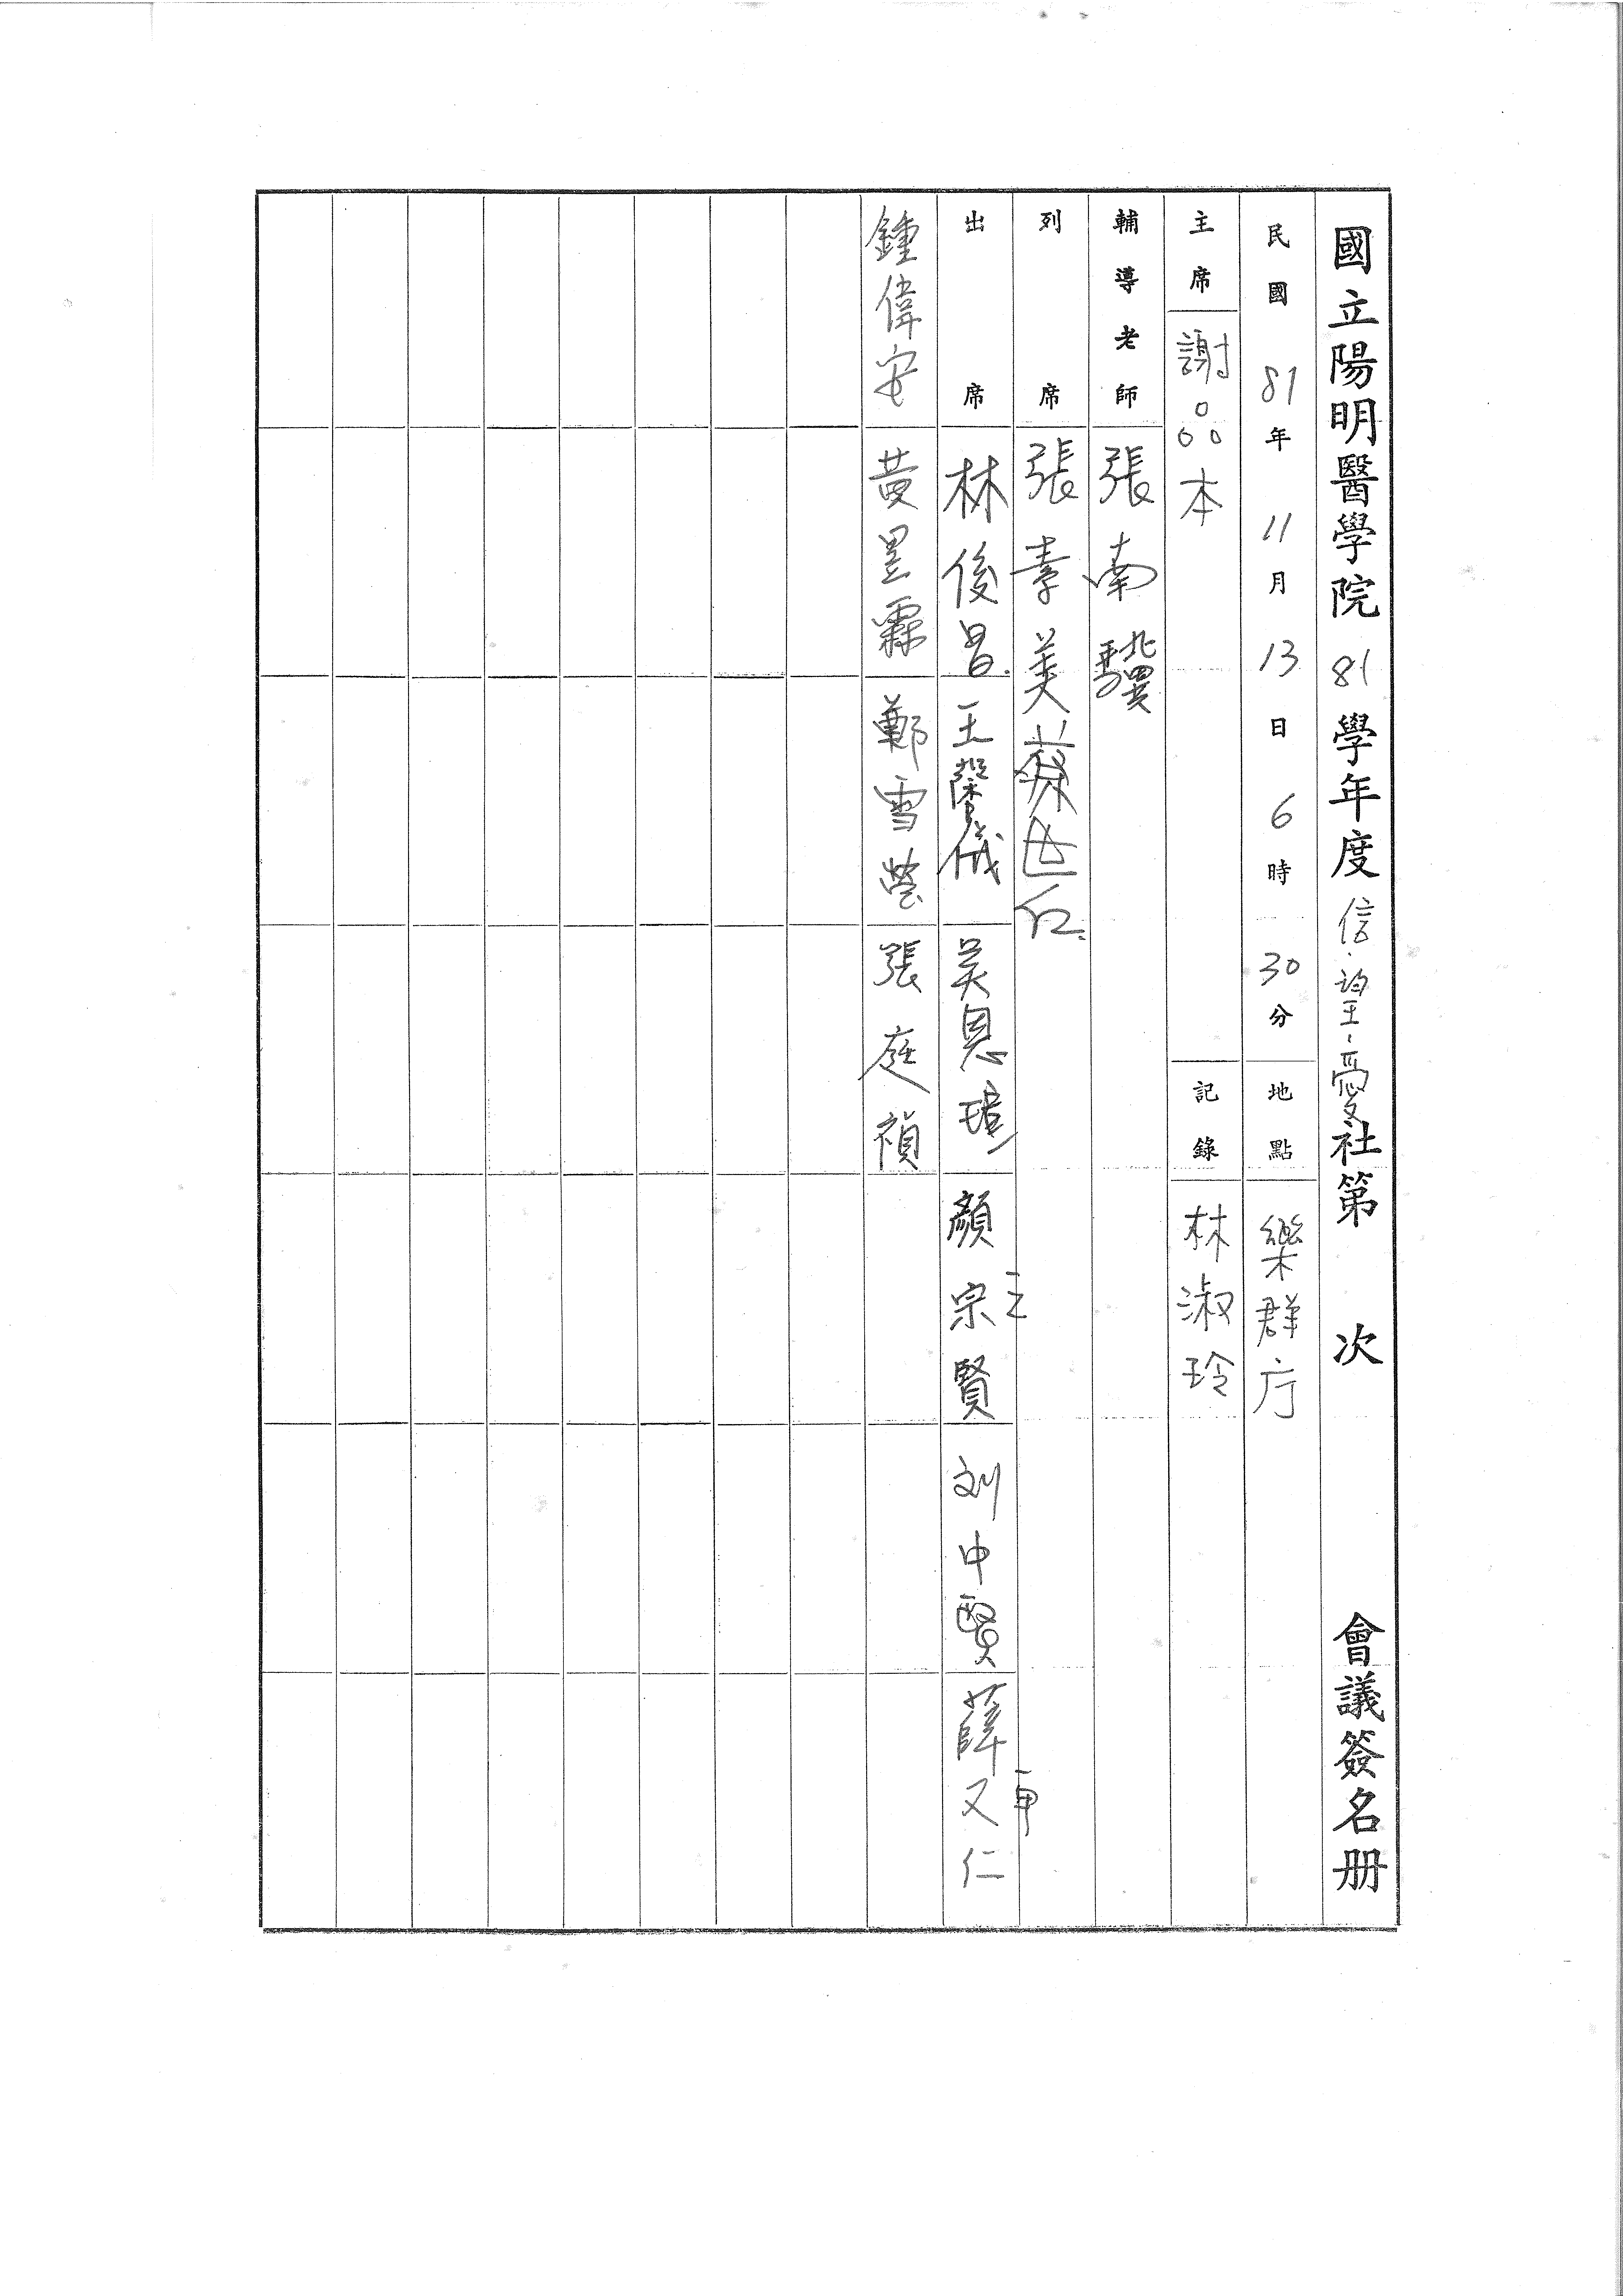 國立陽明醫學院 81 學年度 信、望、愛社第 次 會議簽名册
民國 81 年 11 月 13 日 6 時 30 分 地點 樂群庁
主席 謝 本 記錄 林淑玲
輔導老師 張南驥
列席 張素美 蔡世仁
出席 林俊昌 王馨儀 吳恩 顏宗賢 刘中賢 薛又仁
鍾偉安 黃昱霖 鄭雪瑩 張庭禎